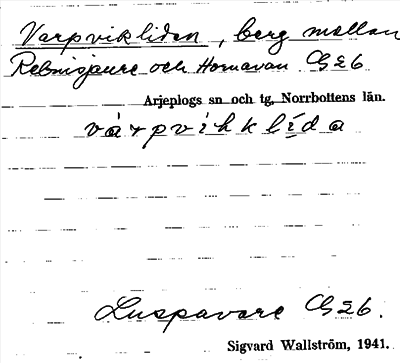 Varpvikliden, berg mellan
Rebnisjaure och Hornavan G26
Arjeplogs sn och tg, Norrbottens län.
várpvíhklída
Luspavare G26.
Sigvard Wallström, 1941.